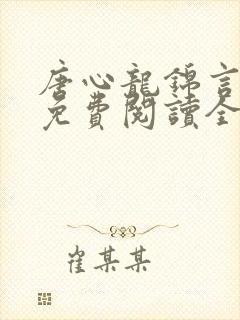 唐心龍錦言
免費閱讀全
崔某某